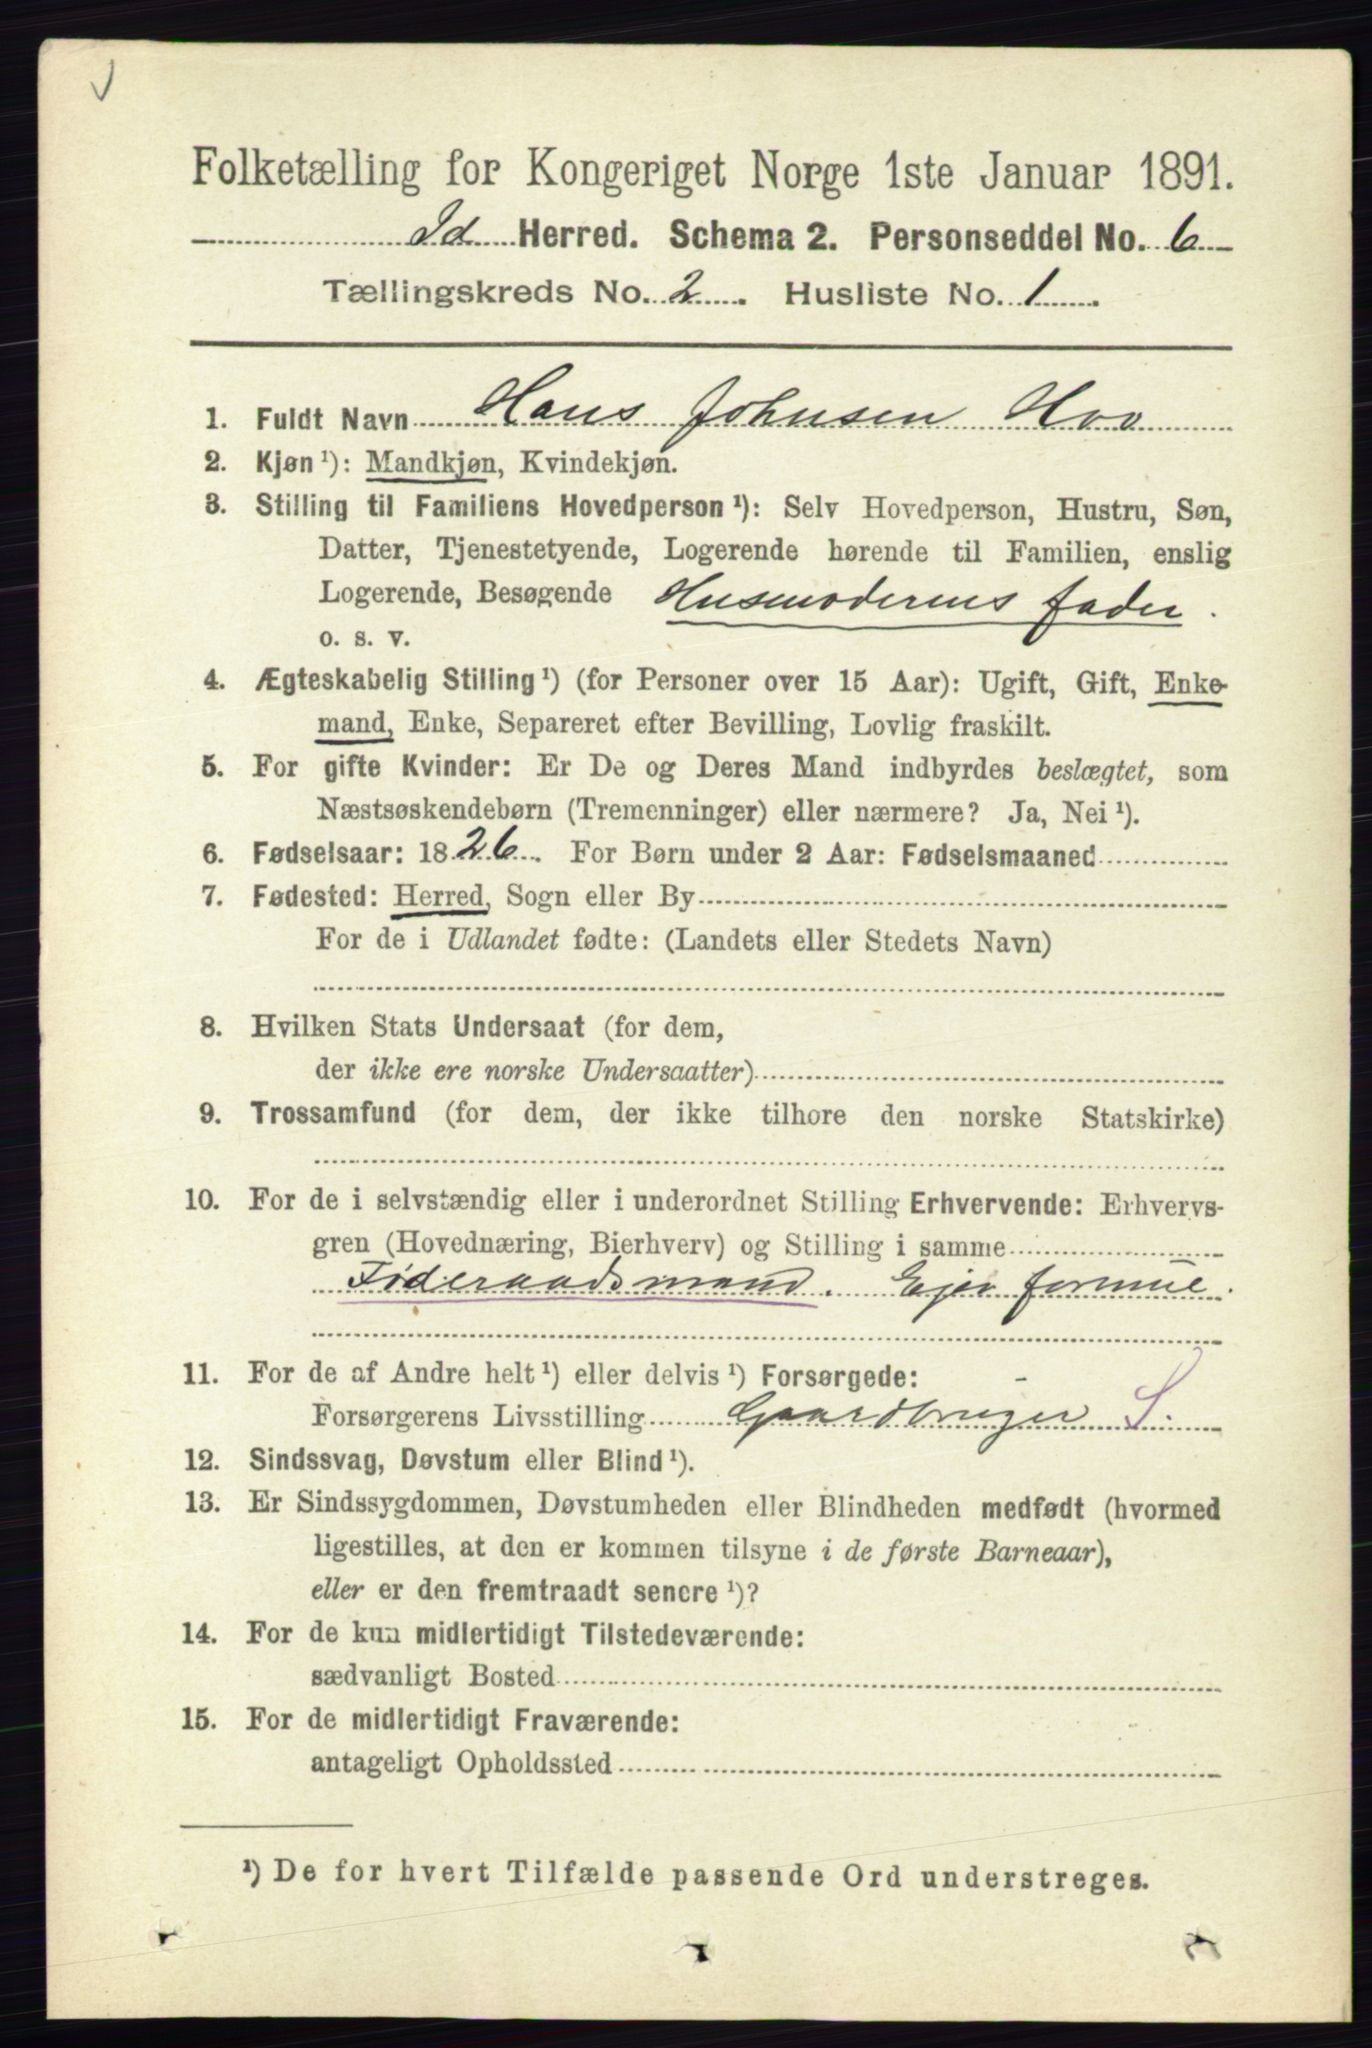 Folketælling for Kongeriget Norge 1ste Januar 1891.
Id Herred. Schema 2. Personseddel No. 6
Tællingskreds No. 2. Husliste No. 1.
1. Fuldt Navn Hans Johnsen Hov
2. Kjøn ¹): Mandkjøn, Kvindekjøn.
3. Stilling til Familiens Hovedperson ¹): Selv Hovedperson, Hustru, Søn,
Datter, Tjenestetyende, Logerende hørende til Familien, enslig
Logerende, Besøgende Husmoderens fader.
o. s. v.
4. Ægteskabelig Stilling ¹) (for Personer over 15 Aar): Ugift, Gift, Enke-
mand, Enke, Separeret efter Bevilling, Lovlig fraskilt.
5. For gifte Kvinder: Er De og Deres Mand indbyrdes beslægtet, som
Næstsøskendebørn (Tremenninger) eller nærmere? Ja, Nei ¹).
6. Fødselsaar: 1826. For Børn under 2 Aar: Fødselsmaaned
7. Fødested: Herred, Sogn eller By
For de i Udlandet fødte: (Landets eller Stedets Navn)
8. Hvilken Stats Undersaat (for dem,
der ikke ere norske Undersaatter)
9. Trossamfund (for dem, der ikke tilhøre den norske Statskirke)
10. For de i selvstændig eller i underordnet Stilling Erhvervende: Erhvervs-
gren (Hovednæring, Bierhverv) og Stilling i samme
Föderaadsmand. Ejer formue.
11. For de af Andre helt ¹) eller delvis ¹) Forsørgede: -
Forsørgerens Livsstilling Gaardbruger S.
12. Sindssvag, Døvstum eller Blind ¹).
13. Er Sindssygdommen, Døvstumheden eller Blindheden medfødt (hvormed
ligestilles, at den er kommen tilsyne i de første Barneaar),
eller er den fremtraadt senere ¹)?
14. For de kun midlertidigt Tilstedeværende:
sædvanligt Bosted
15. For de midlertidigt Fraværende:
antageligt Opholdssted
¹) De for hvert Tilfælde passende Ord understreges.